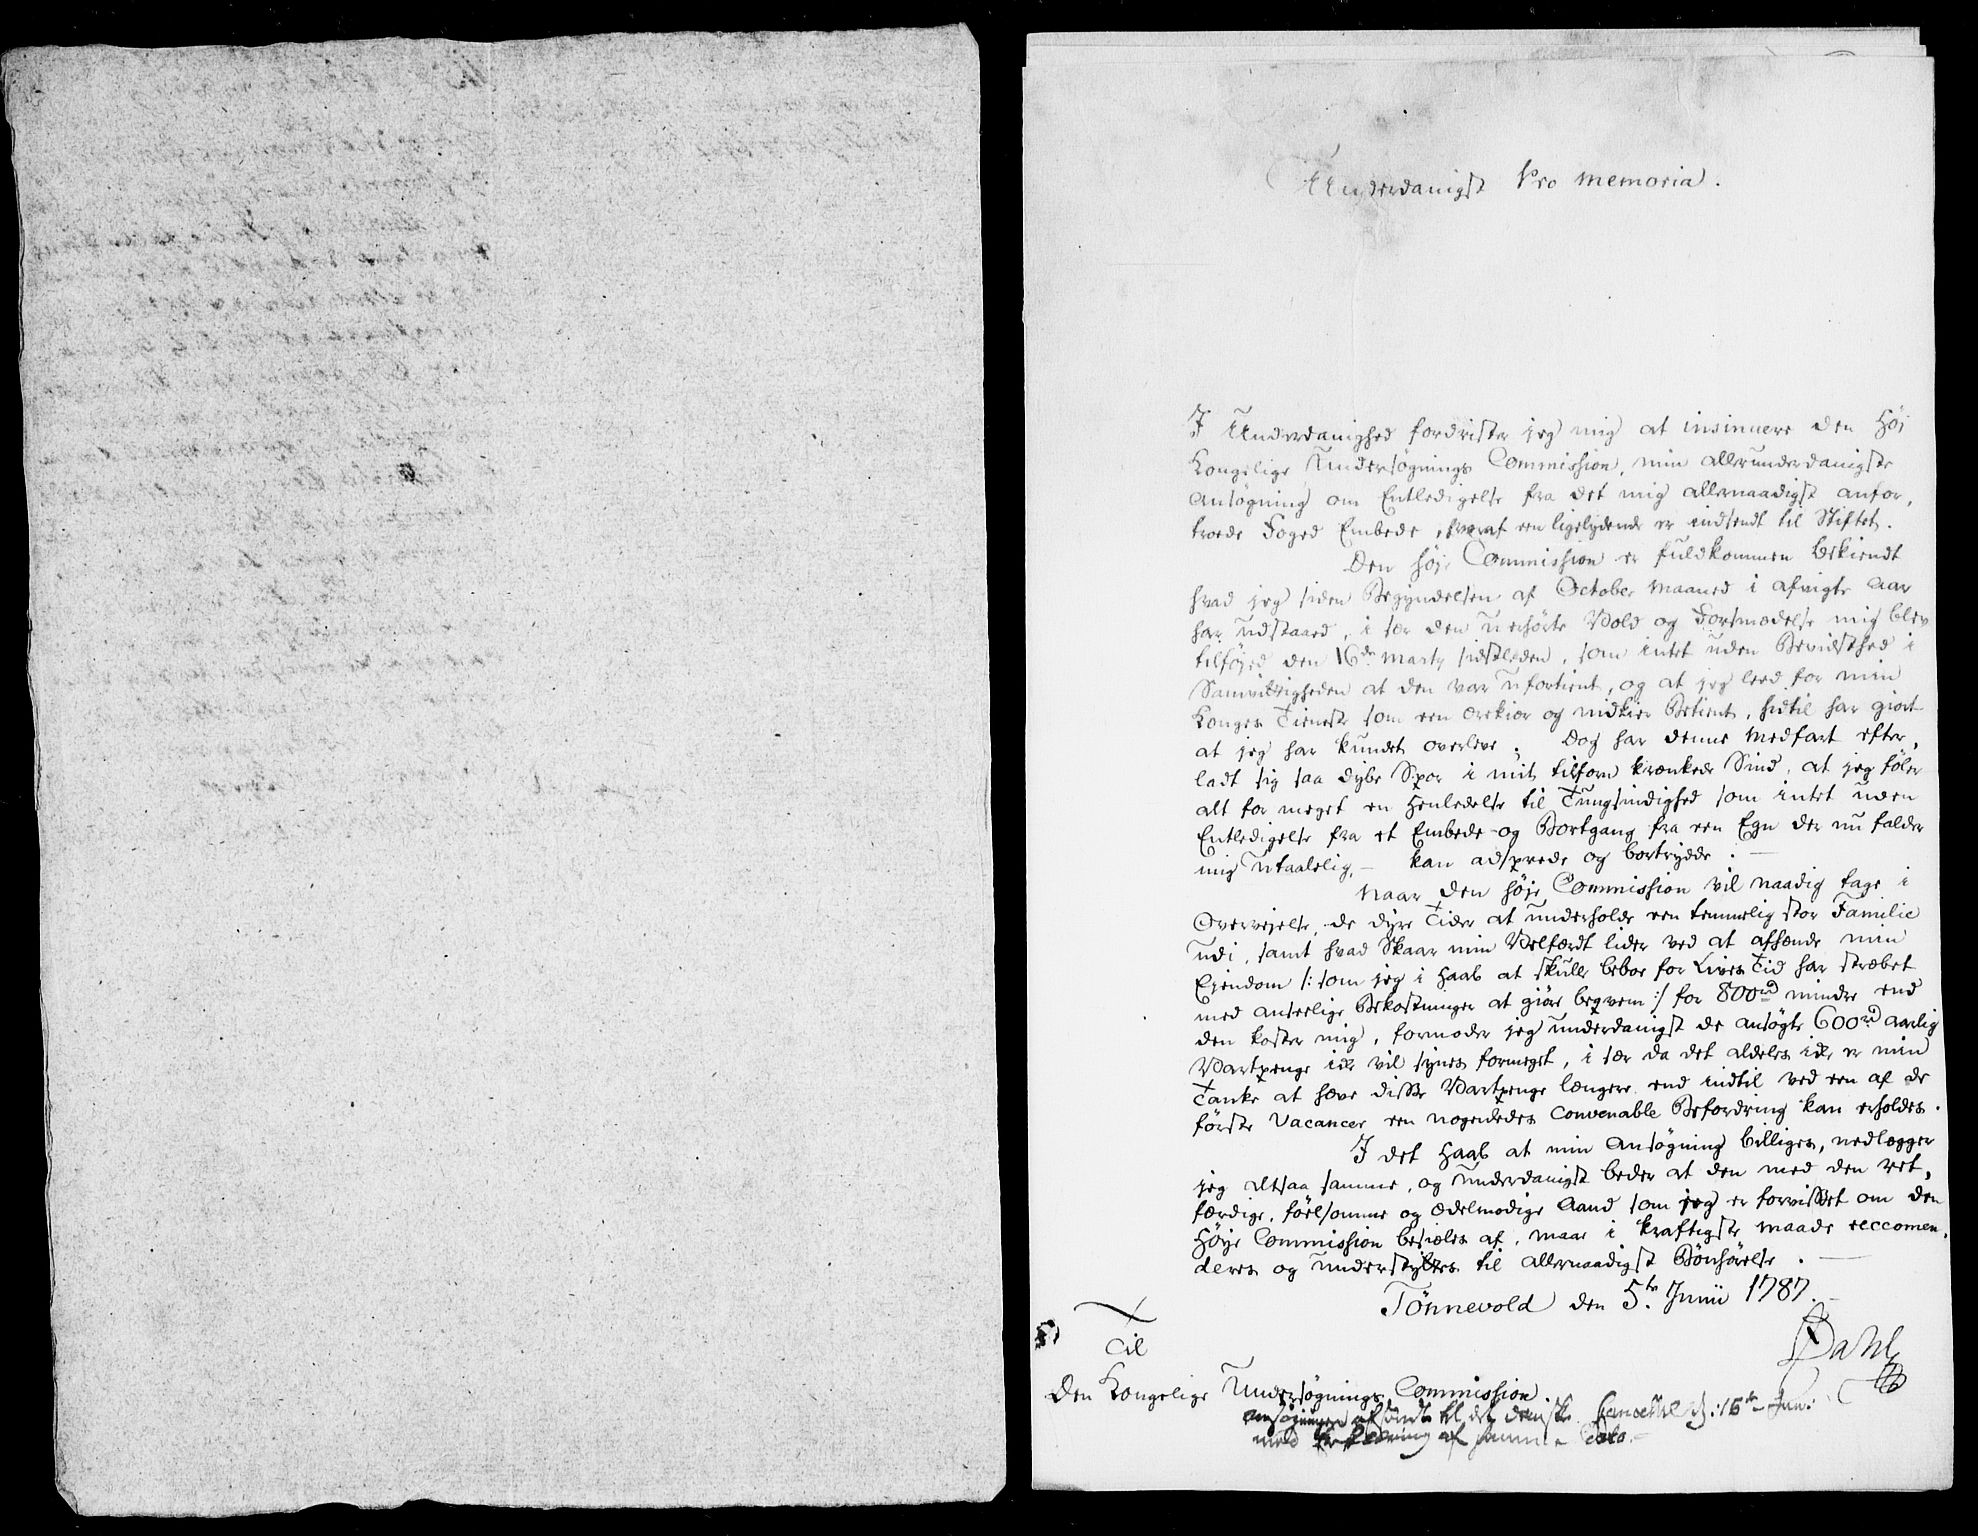 Underdanigst Pro memoria.
I Underdanighed fordrister jeg mig at insinuere den Høi
Kongelige Undersøgnings Commission, min allerunderdanigste
Ansøgning om Entledigelse fra det mig allernaadigst anfor,
troede Foged Embede, hvoraf een ligelydende er indsendt til Stiftet.
Den høje Commission er fuldkommen bekiendt
hvad jeg siden Begyndelsen af October Maaned i afvigte Aar
har udstaaed, i sær den uhørte Vold og Forsmædelse mig blev
tilføjed den 16de Marty sidstleden, som intet uden Bevidsthed i
Samvittigheden at den var ufortient, og at jeg leed for min
Konges Tieneste som een ærekiær og nidkier Betient, hidtil har giort
at jeg har kundet overleve. Dog har denne Medfart efter,
ladt sig saa dybe Spor i mit tilforn krænkede Sind, at jeg føler
alt for meget en Henledelse til Tungsindighed som intet uden
Entledigelse fra et Embede og Bortgang fra een Egn der nu falder
mig utaalelig, – kan adsprede og bortrydde. –
Naar den høje Commission vil naadig tage i
Overvejelse, de dyre Tider at underholde een temmelig stor Familie
udi, samt hvad Skaar min Velfærdt lider ved at afhænde min
Ejendom /: som jeg i Haab at skulle beboe for Lives Tid har stræbet
med anseelige Bekostninger at giøre beqvem :/ for 800rd mindre end
den koster mig, formoder jeg underdanigst de ansøgte 600rd aarlig
Vartpenge ikke vil synes formeget, i sær da det aldeles ikke er min
Tanke at hæve disse Vartpenge længere end indtil ved een af de
første Vacancer een nogenledes convenable Befordring kan erholdes.
I det Haab at min Ansøgning billiges, nedlægger
jeg altsaa samme, og underdanigst beder at den med den ret,
færdige, følsomme og ædelmodige Aand som jeg er forvisset om den
Høje Commission besiæles af, maae i kraftigste Maade reccomen,
deres og understyttes til allernaadigst Bønhørelse. –
Tønnevold den 5te Junii 1787. –
Dahl
Til
Den Kongelige Undersøgnings Commission.
Ansøgningen afsendt til det danske Cancellie d: 16te Junii
med Erklæring af samme Dato. –